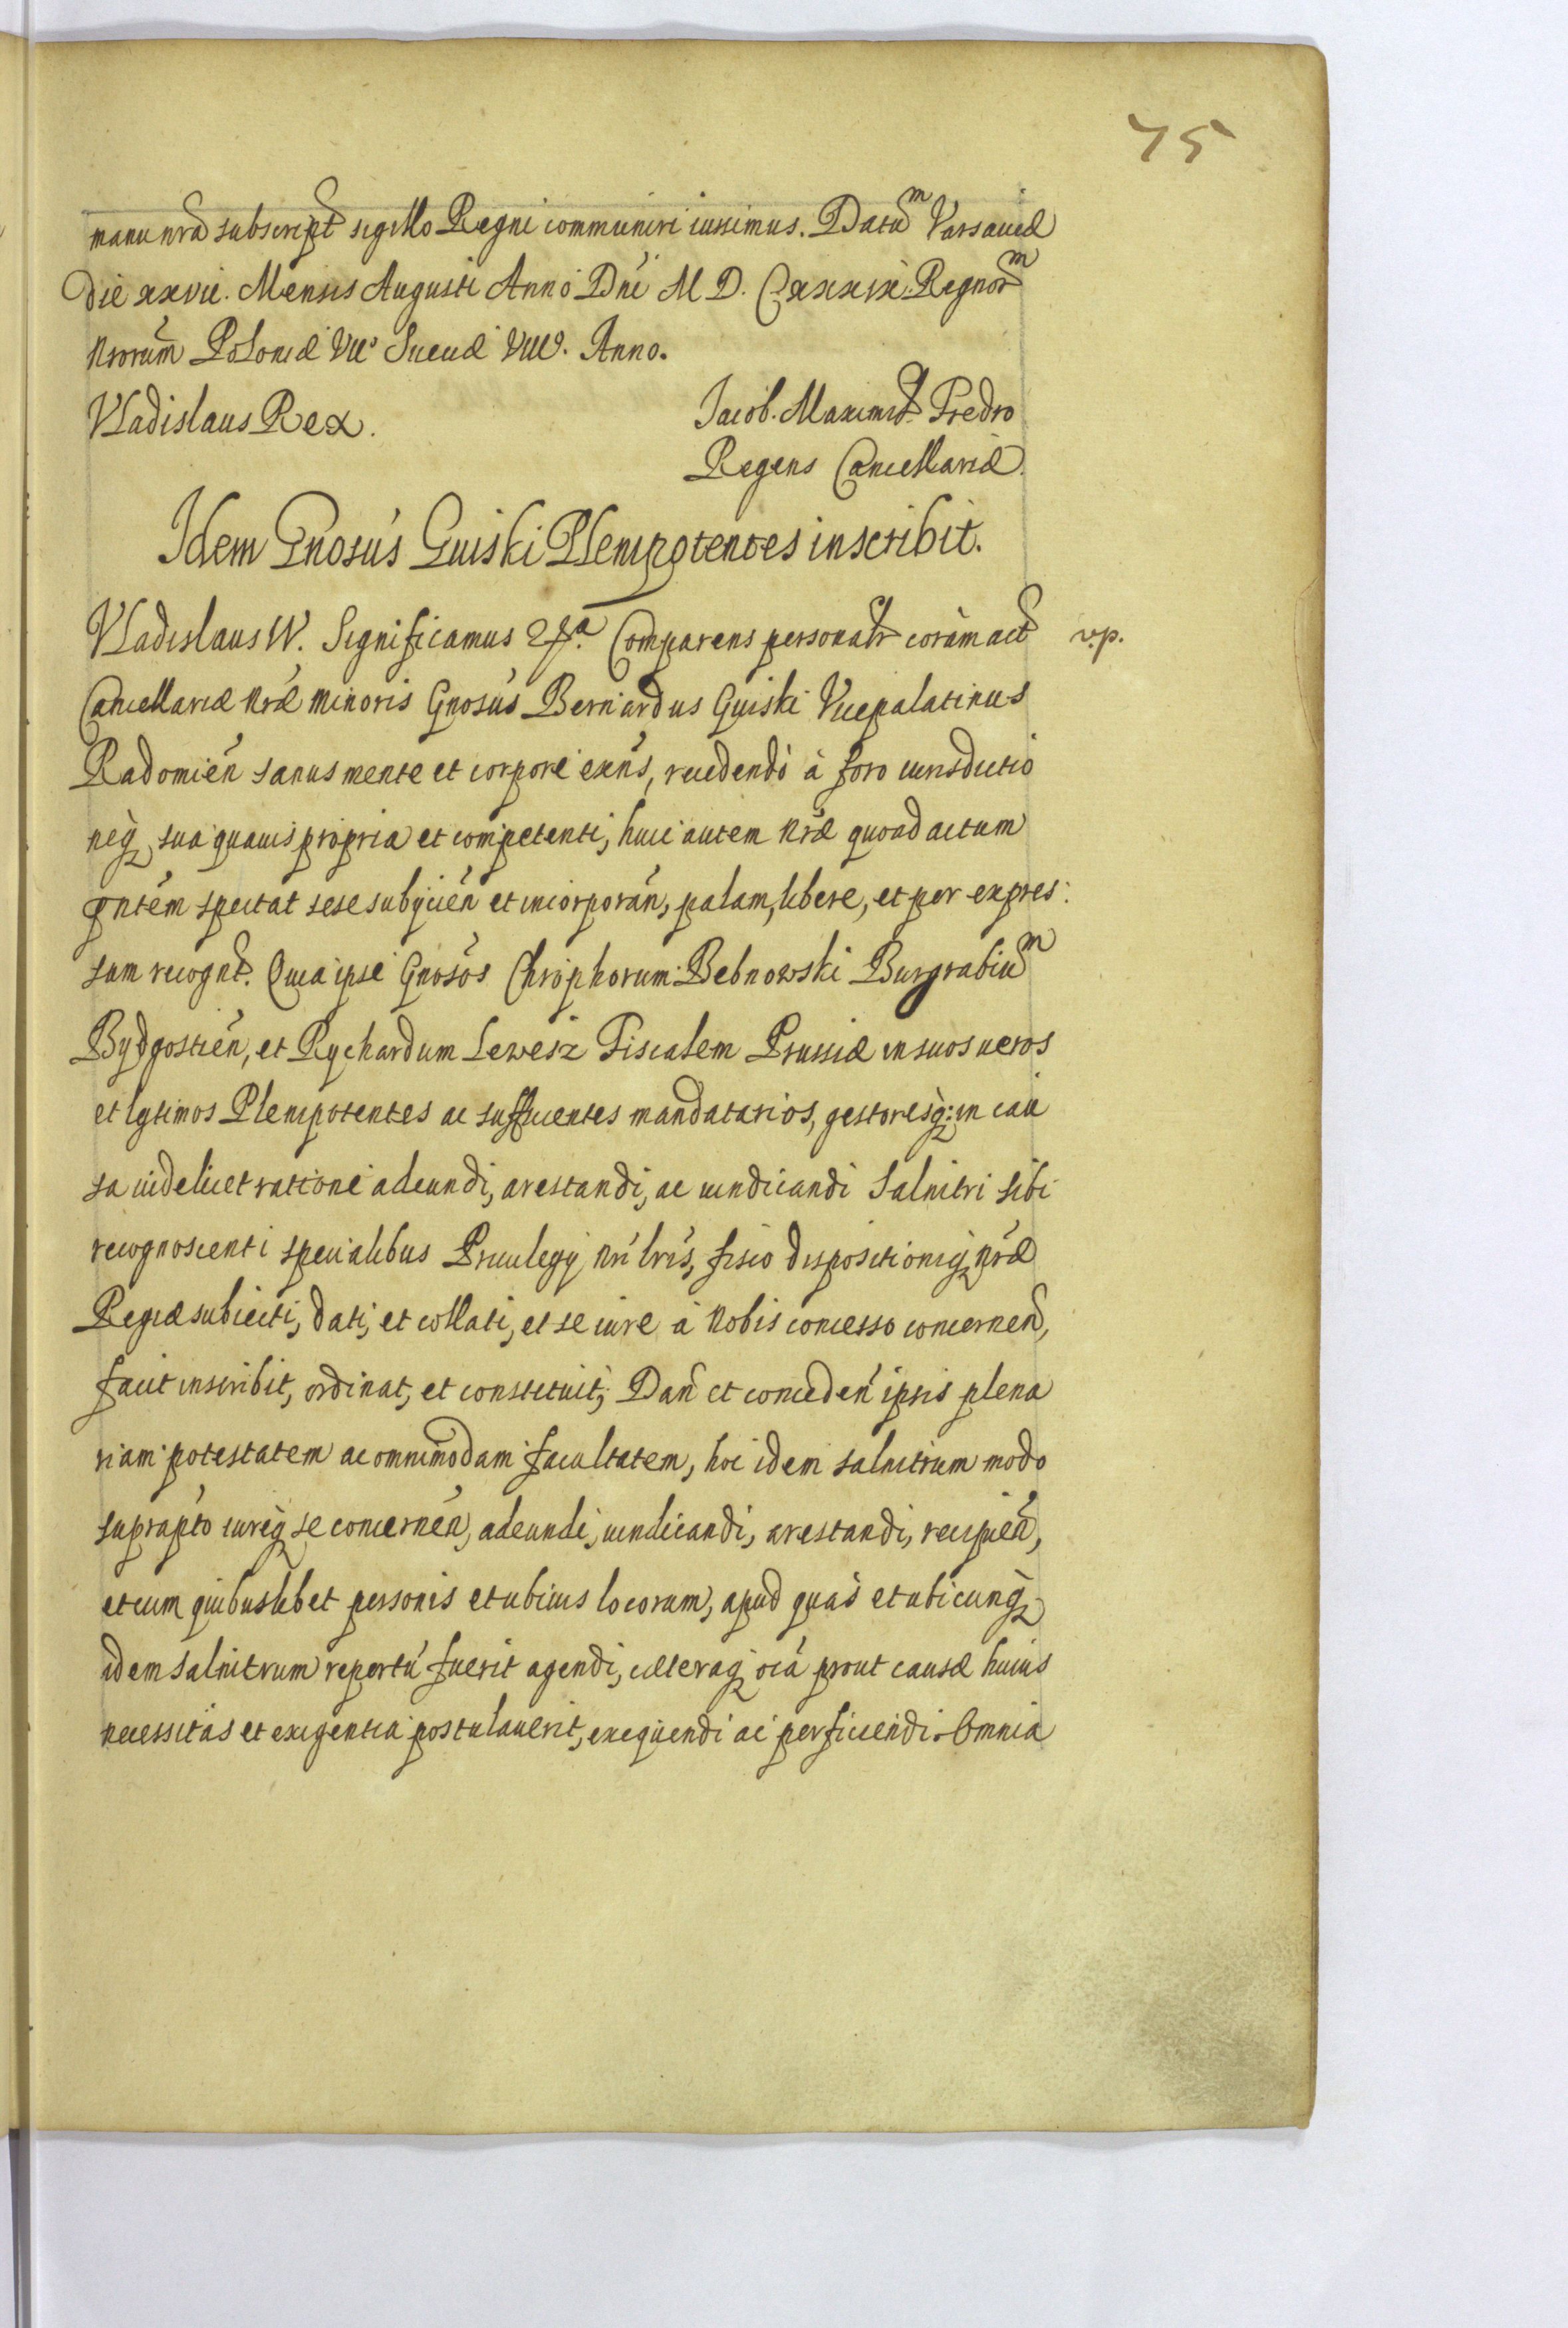 75
manu nrã subscript sigillo Regni communiri iussimus. Datũm Varsauiæ
die xxvii. Mensis Augusti Anno Dni M D. Cxxxix Regnorm
Nrorum Poloniæ VII° Sueciæ VIII°. Anno.
Vladislaus Rex.
Jacob. Maximil. Fredro
Regens Cancellariæ.
Idem Gnosus Guiski Plenipotentes inscribit.
Vladislaus IV. Significamus &a. Comparens personalr coram act
v.p.
Cancellariæ Nræ minoris Gnosus Bernardus Guiski Vicepalatinus
Radomien sanus mente et corpore exns, recedendo à foro iurisdictio
neq sua quauis propria et competenti, huic autem Nræ quoad actum
pntem spectat sese subijcien et incorporan, palam, libere, et per expres:
sum recognt. Quia ipse Gnosos Chrophorum Bebnowski Burgrabium
Bydgostien, et Rychardum Lewesz Fiscalem Prussiæ in suos ueros
et lgtimos Plenipotentes ac sufficientes mandatarios, gestoresq: in cau
sa uidelicet ratione adeundi, arestandi, ac uindicandi Salnitri sibi
recognoscenti specialibus Priuilegij Nri lris, fisco dispositioniq Nræ
Regiæ subiecti, dati, et collati, et se iure à Nobis concesso concernen,
facit inscribit, ordinat, et constituit; Dan et conceden ipsis plena
riam potestatem ac omnimodam facultatem, hoc idem salnitrum modo
suprapto iureq se concernen, adeundi, uindicandi, arestandi, recipien,
et cum quibuslibet personis et ubiuis locorum, apud quas et ubicunq
idem salnitrum repertu fuerit agendi, cæteraq oia prout causæ huius
necessitas et exigentia postulauerit, exequendi ac perficiendi. Omnia